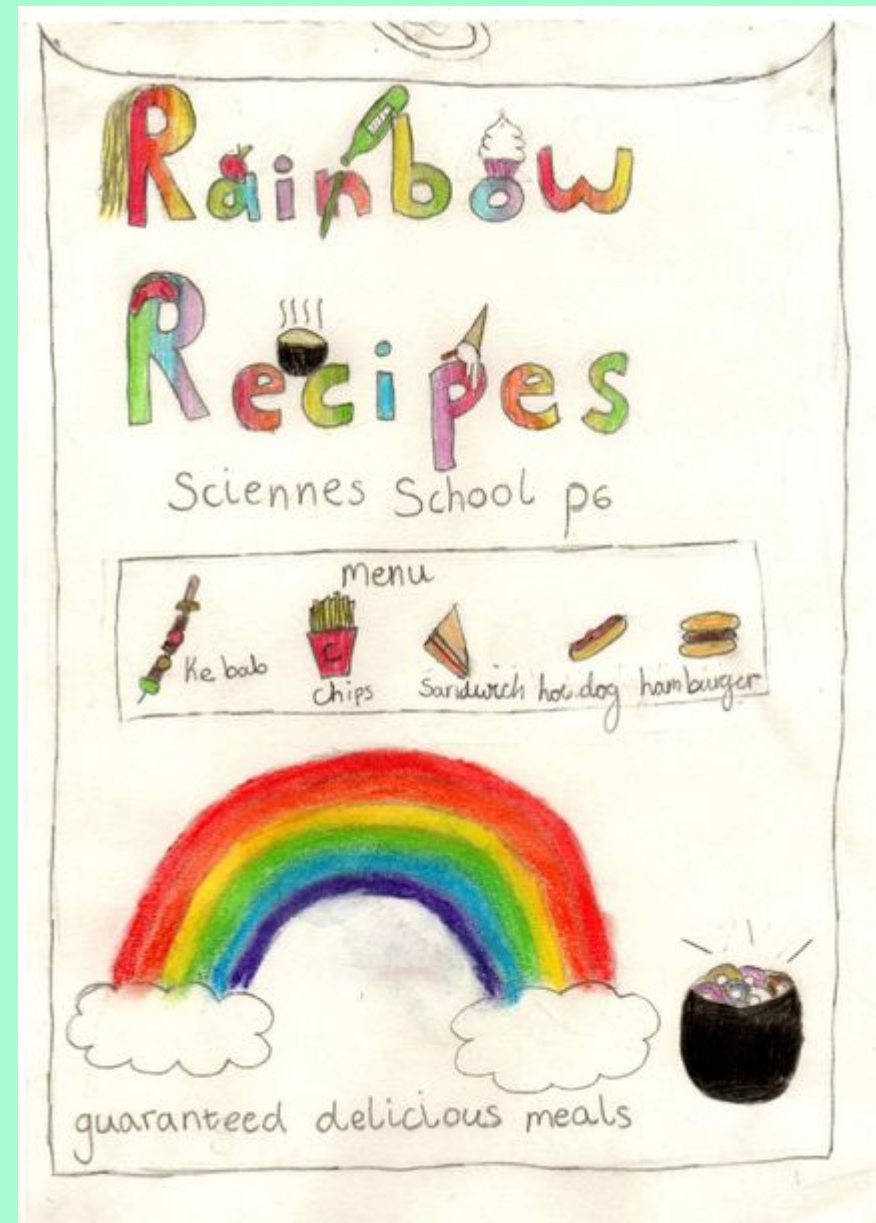 Rainbow
Recipes
Sciennes School p6
menu
Kebab
chips
Sandwich
hot dog
hamburger
C
guaranteed delicious meals